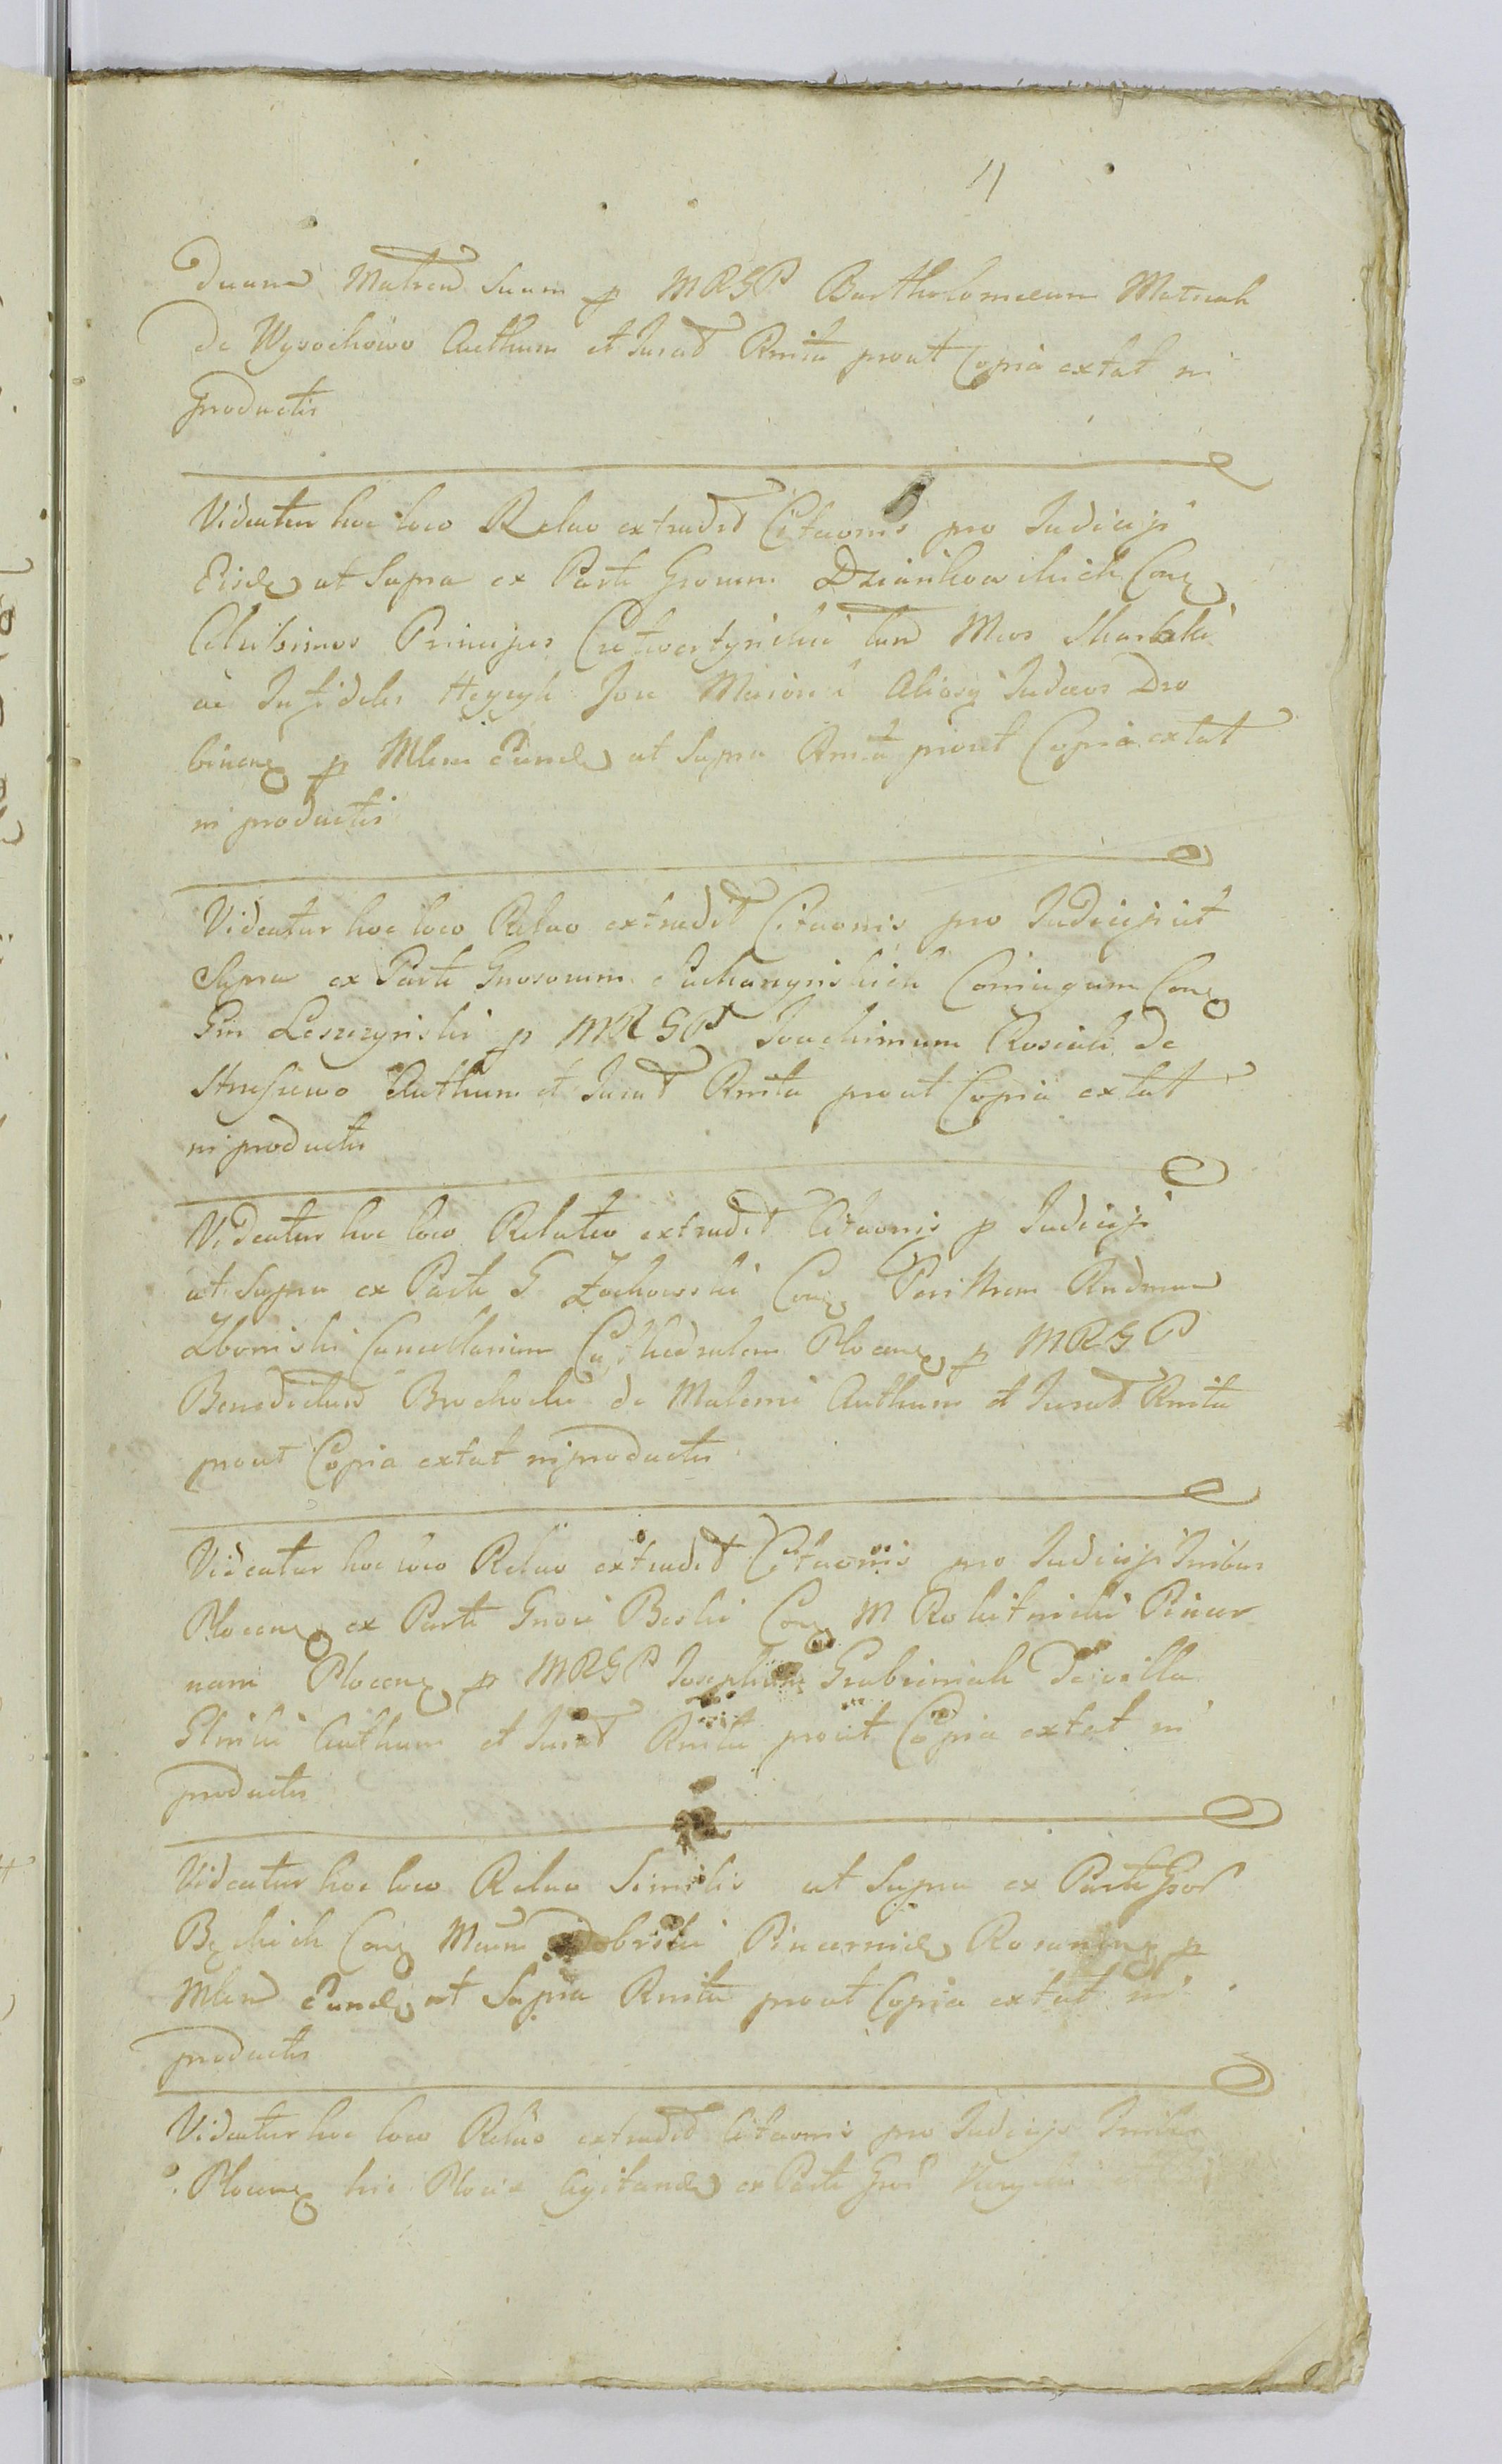 11
Duam Matrem Suam p MRGP Bartholomaeum Matusik
de Wyrochowo Authum et Jurat Rnita prout Copia extat in
productis
Videatur hoc loco Relao extradit Citaonis pro Judicijs
Eisd ut Supra ex Parte Grorum Dziankowskich Con
Celsissimos Principes Czetwertynskie tum Mcos Skarbki
ac Infideles Heyzyk Jone aliosq Judaeos Dro
binens p Mlem Eund ut Supra Rnita prout Copia extat
in productis
Videatur hoc loco Relao extradit Citaonis pro Judicijs ut
Supra ex Parte Gnosorum Coniugum Con
Gm Leszczynski p MRGP Joachimum Rosiak de
Authum et Jurat Rnita prout Copia extat
in productis
Videatur hoc loco Relatio extradit Citaonis p Judicijs
ut Supra ex Parte G Zochowski Con Perillrem Rndmum
Zboinski Cancellarium Cathedralem Plocens p MRGP
Benedictum de Malerni Authum et Jurat Rnita
prout Copia extat in productis
Videatur hoc loco Relao extradit Citaonis pro Judicijs Tribus
Plocens ex Parte Gnosi Beski Con M Rokitnicki Pincer
nam Plocens p MRGP Josephum Grabiniak de villa
Glinki Authum et Jurat Rnita prout Copia extat in
productis
Videatur hoc loco Relao Similis ut Supra ex Parte Gros
Bskich Con Mcum Dobrski Pincernid Rosanens p
Mlem Eund ut Supra Rnita prout Copia extat in
productis
Videatur hoc loco Relao extradit Citaonis pro Judicijs
Plocens hic Plociae Agitand ex Parte Gros